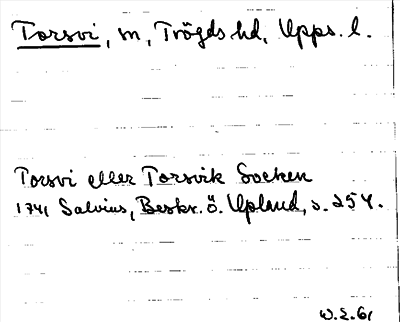 Torsvi, sn, Trögds hd, Upps. l.
Torsvi eller Torsvik Socken
1741 Salvius, Beskr. ö. Upland, s. 254.
W.E. 61